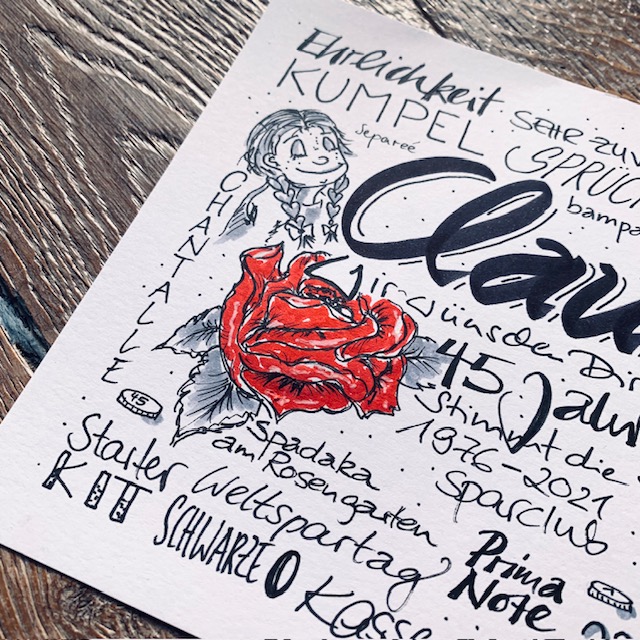 Ehrlichkeit SEHR ZUV
KUMPEL SPRÜC
Separeé bampa
Clau
CHANTALLE
Wir wünschen Dir
45 Jahr
Stimmt die
1976-2021
Sparclub
45
Spadaka
am Rosengarten
Starter Weltspartag
KIT SCHWARZE 0 Kasse
Prima
Note
1